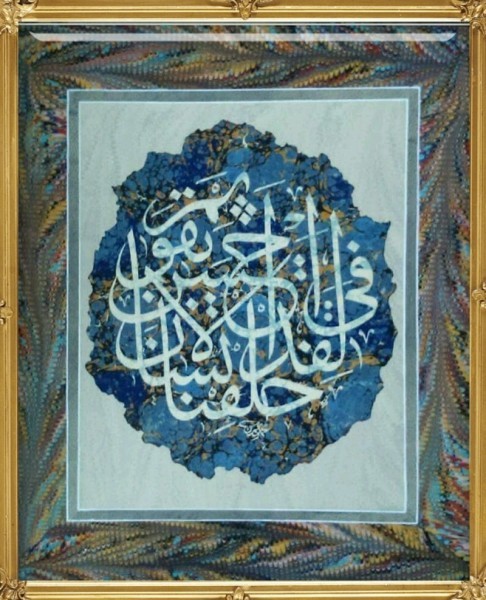 لقد خلقنا الانسان فى احسن تقويم